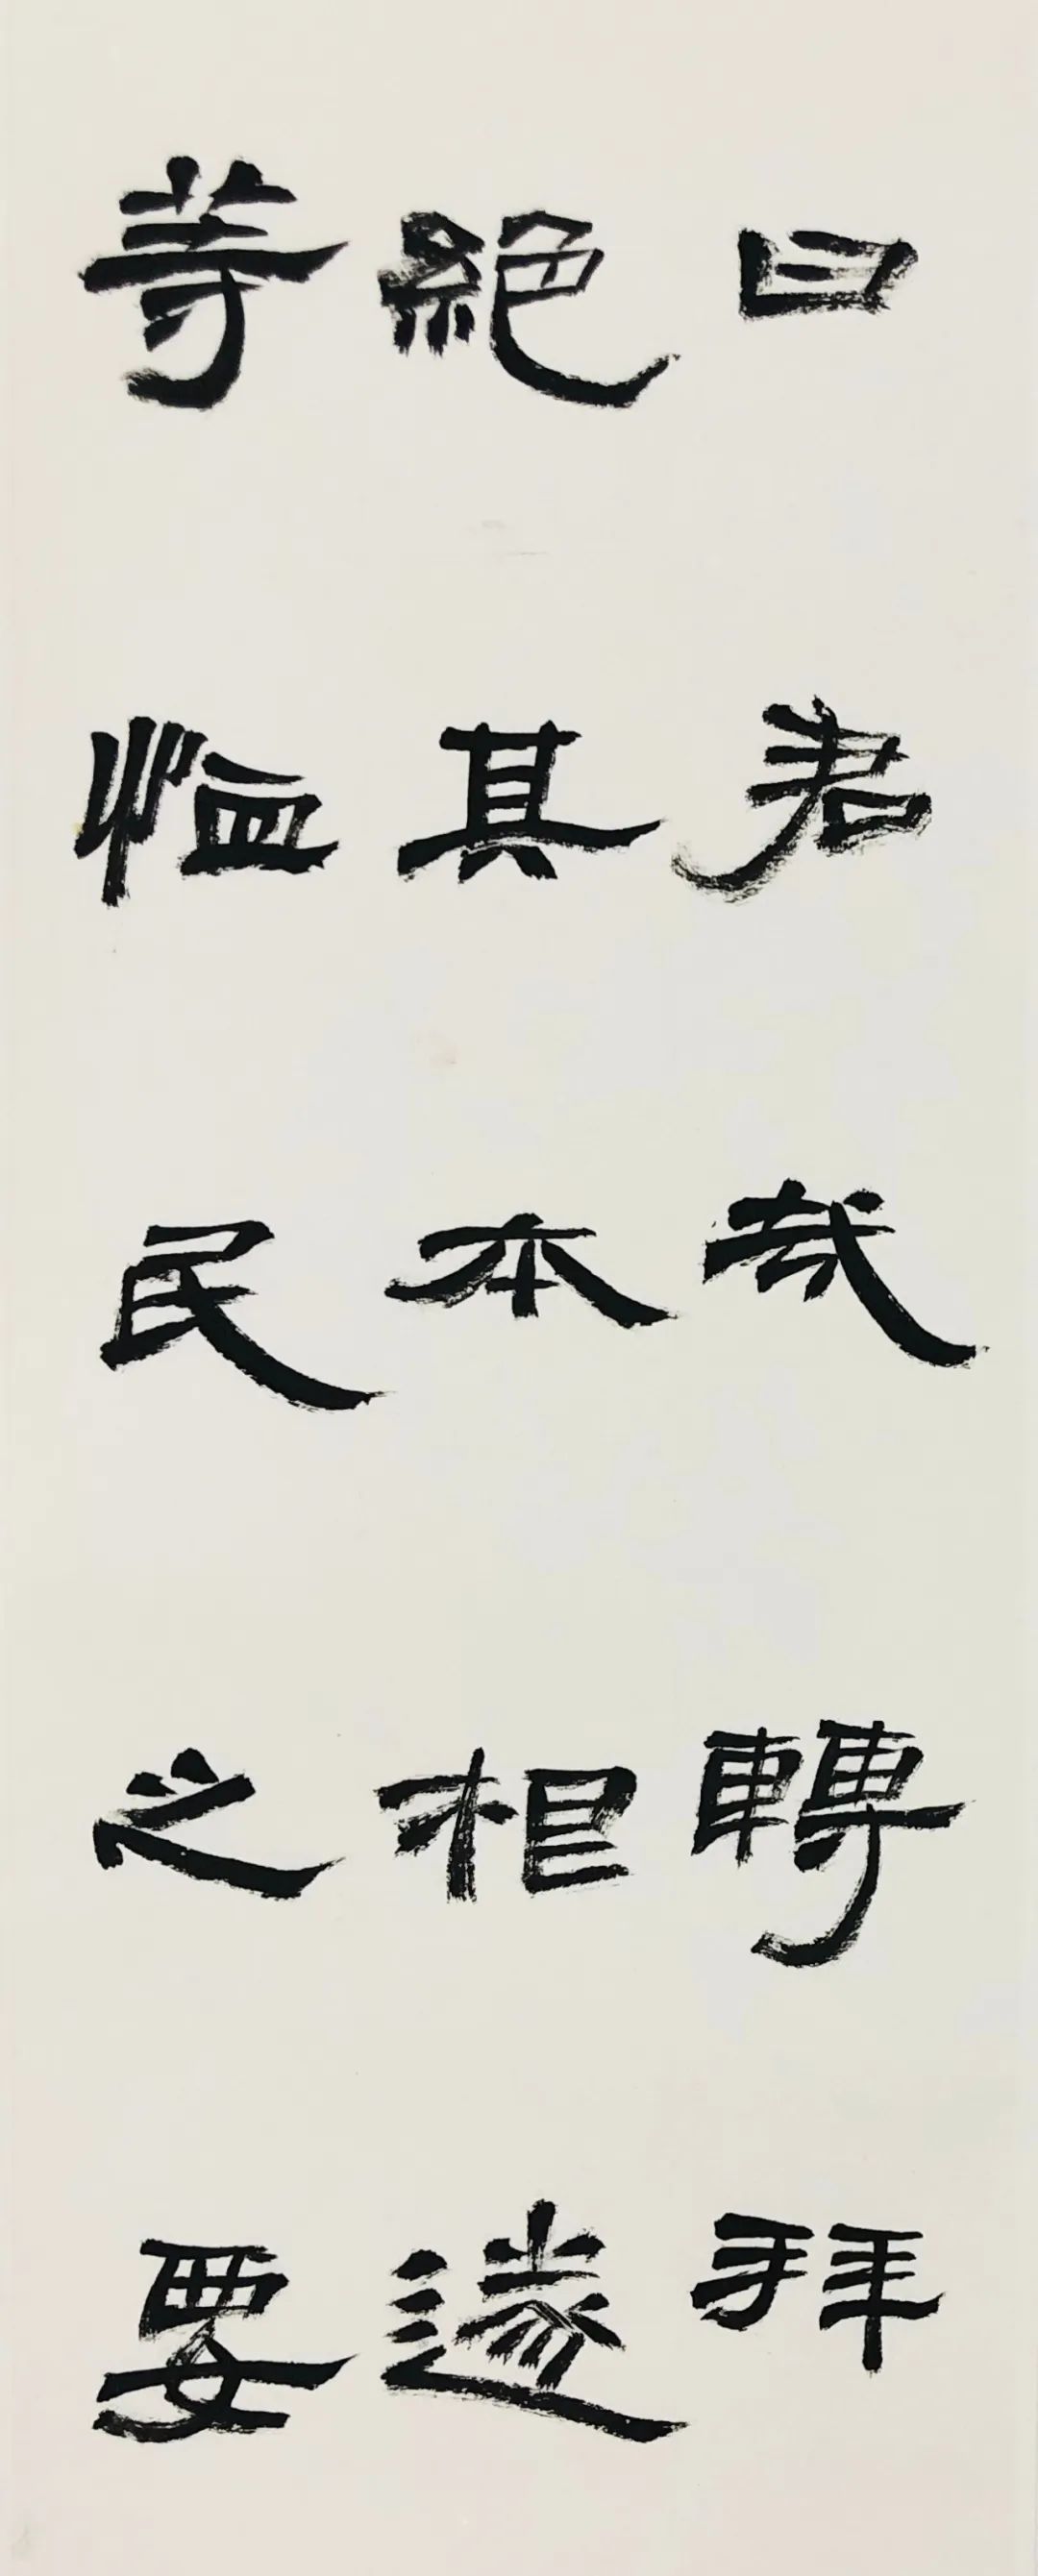 曰君哉轉拜
絕其本相遂
等恤民之要